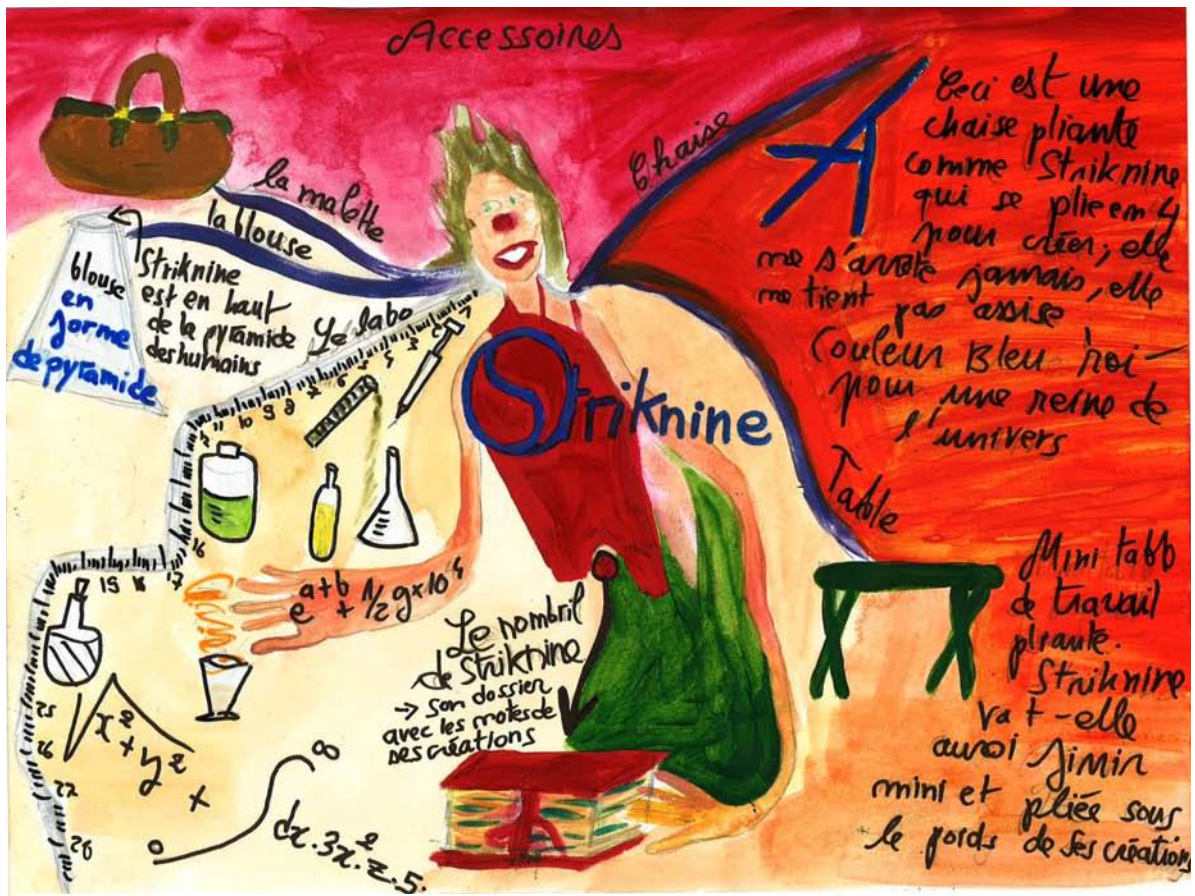 Accessoires
la malette
la blouse
blouse
en
forme
de pyramide
Striknine
est en haut
de la pyramide
des humains
Le labo
Chaise
Ceci est une
chaise pliante
comme Striknine
qui se plie en 4
pour créer, elle
ne s'arrête jamais, elle
ne tient pas assise
Couleur Bleu roi
pour une reine de
l'univers
Striknine
Table
Mini tabb
de travail
pliante.
Striknine
va t-elle
aussi finir
mini et pliée sous
le poids de ses créations
Le nombril
de Striknine
→ son dossier
avec les notes de
ses créations
e a+b + 1/2 g x 10
√x² + y² +
dx. 3x². z. 5.
8 9 10 11
16
17 18 19
25
26
27
28